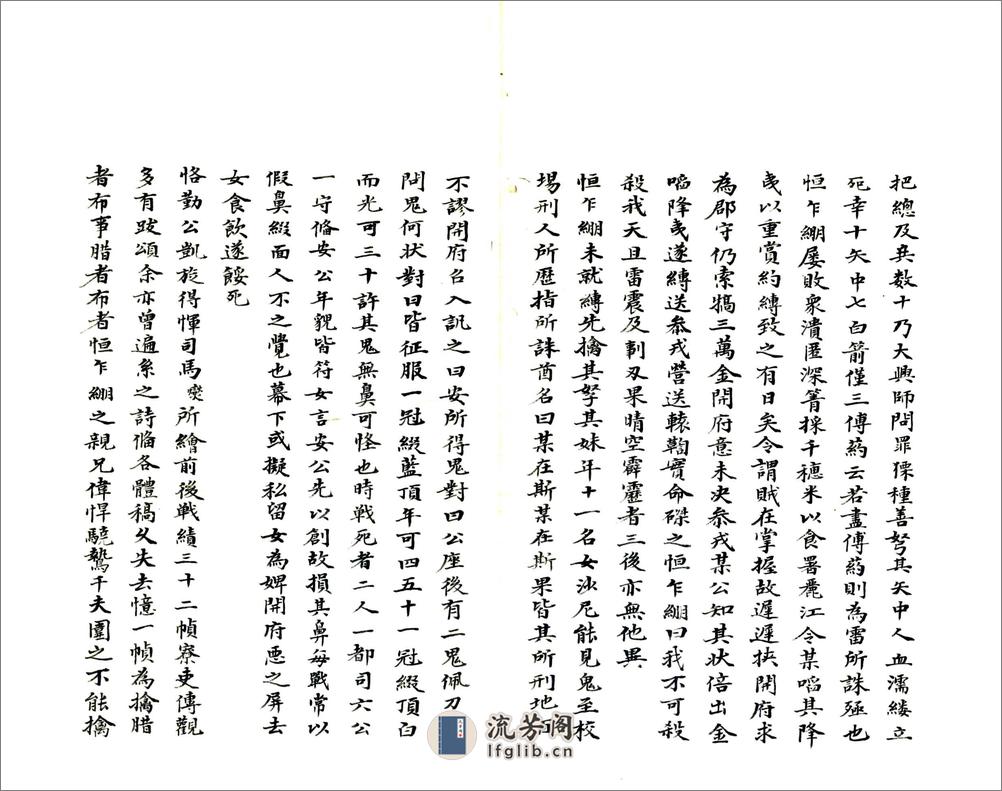 把總及兵数十乃大興師問罪猓種善弩其矢中人血濡縷立
死幸十矢中七白箭僅三傅药云若盡傅药則為雷所誅殛也
恒乍綳屡敗衆潰匿深箐採千穗米以食署麗江令某啗其降
夷以重賞約縳致之有日矣令謂賊在掌握故遲遲挟開府求
為郡守仍索犒三萬金開府意未决叅戎某公知其状倍出金
啗降夷遂縳送叅戎營送轅鞫實命磔之恒乍綳曰我不可殺
殺我天且雷震及剚刃果晴空霹靂者三後亦無他異
恒乍綳未就縳先擒其孥其妹年十一名女沙尼能見鬼至校
場刑人所歷指所誅酋名曰某在斯某在斯果皆其所刑地
不謬開府召入訊之曰安所得鬼對曰公座後有二鬼佩刀
問鬼何状對曰皆征服一冠綴藍頂年可四五十一冠綴頂白
而光可三十許其鬼無鼻可怪也時戦死者二人一都司六公
一守俻安公年貌皆符女言安公先以創故損其鼻每戰常以
假鼻綴面人不之覺也幕下或擬私留女為婢開府惡之屏去
女食飲遂餒死
恪勤公凱旋得惲司馬燮所繪前後戦績三十二幀寮吏傳觀
多有跋頌余亦曾遍系之詩俻各體稿乆失去憶一幀為擒腊
者布事腊者布者恒乍綳之親兄偉悍驍鷙千夫圍之不能擒
流芳阁
lfglib.cn